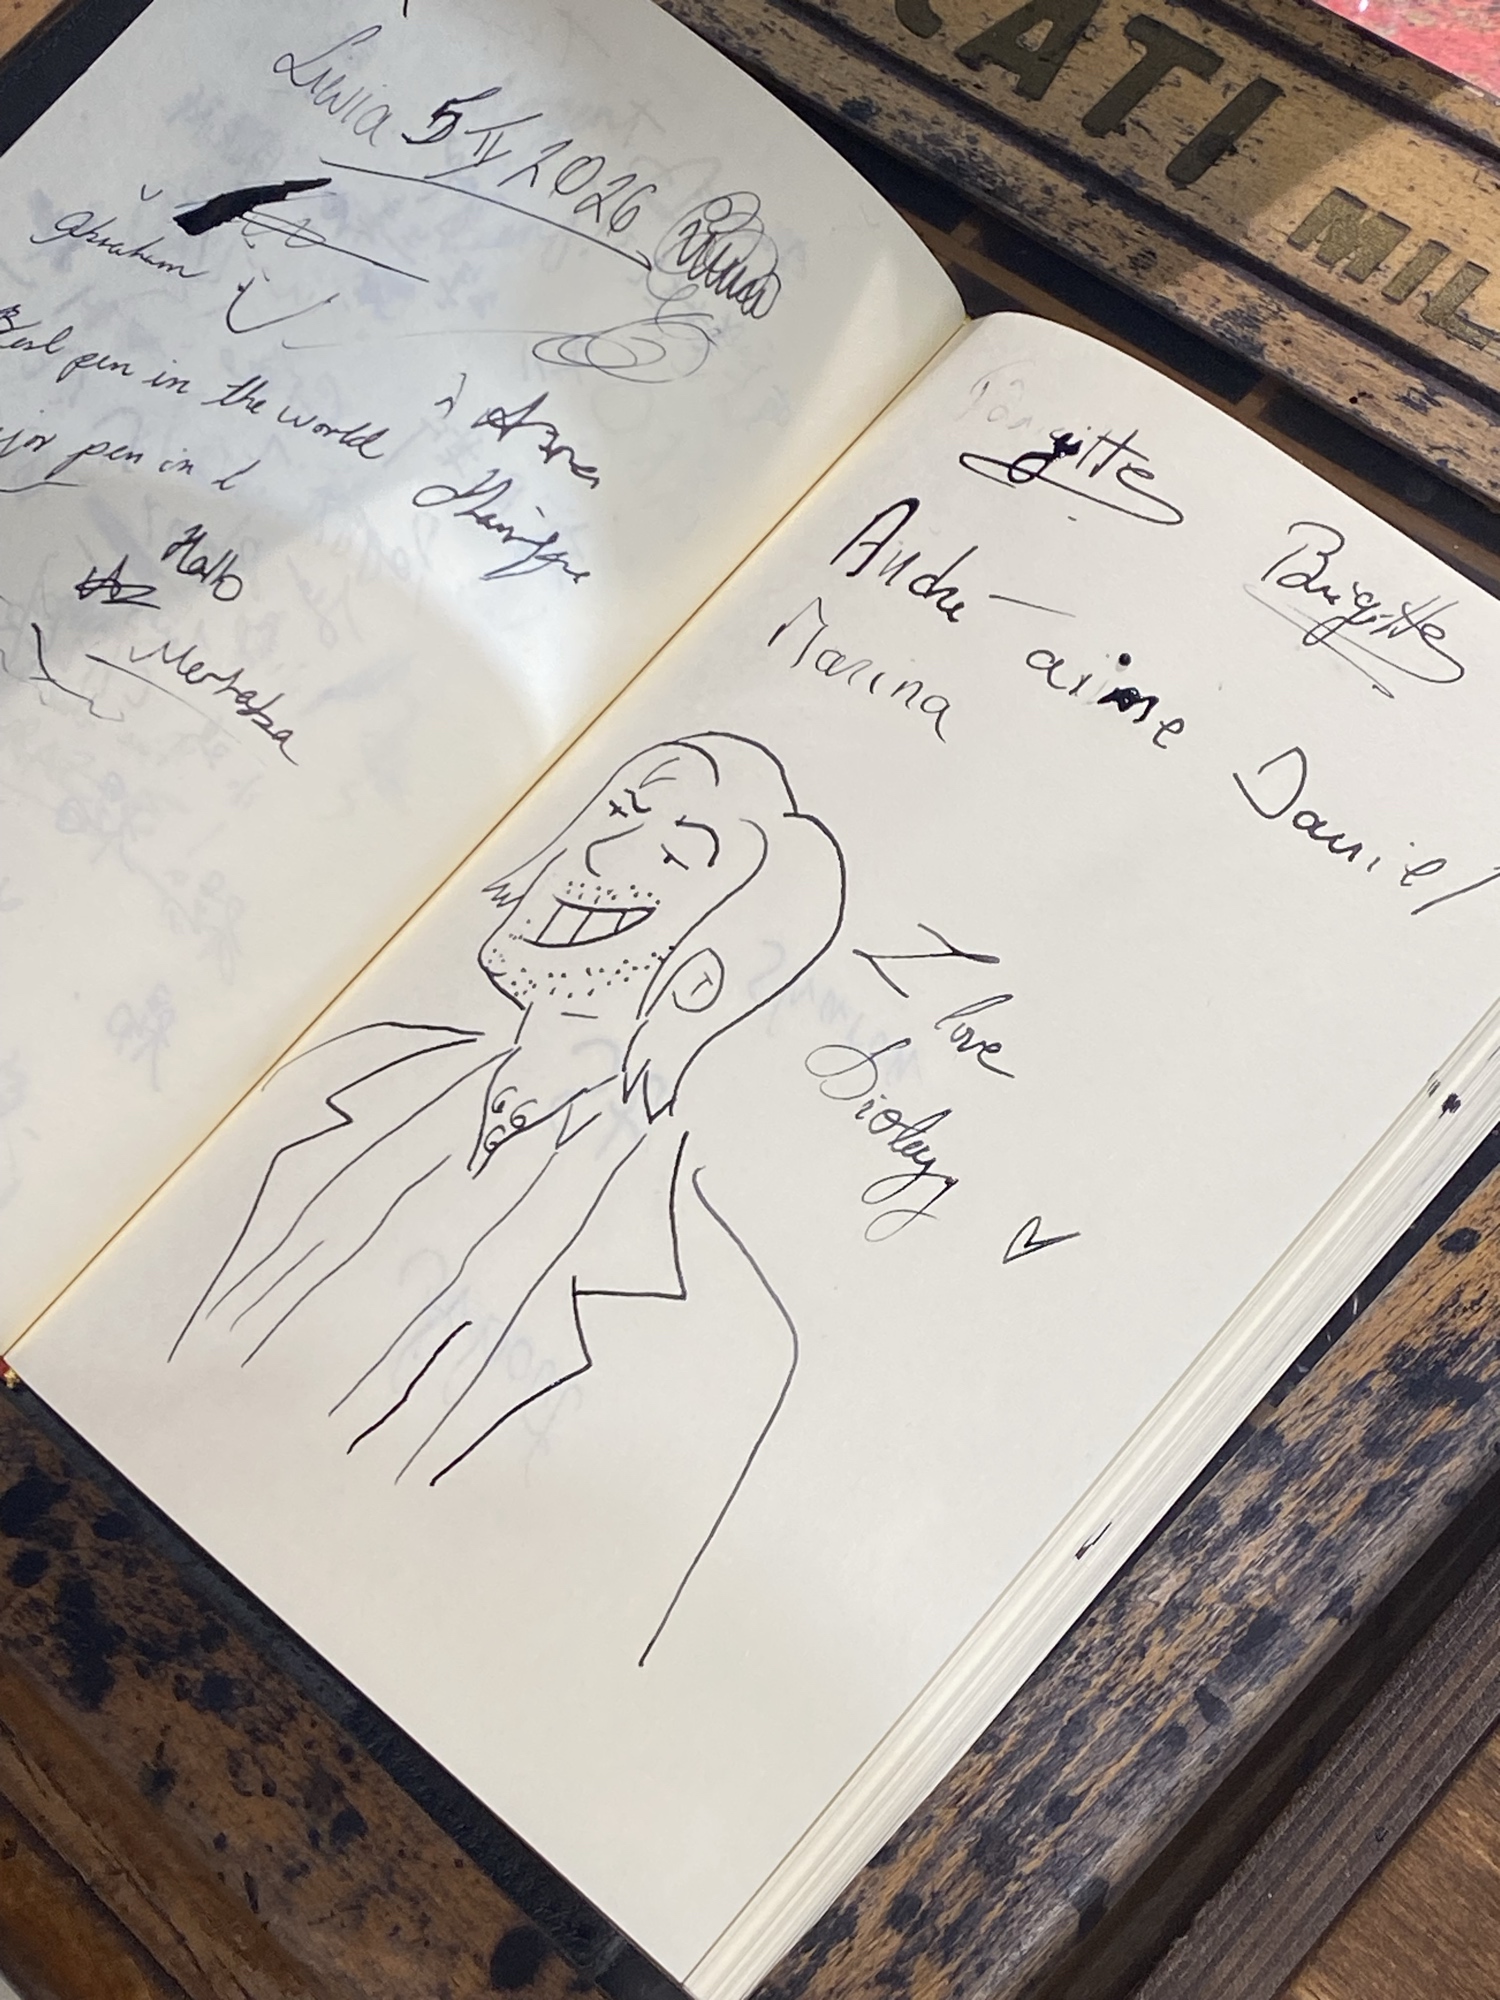 Liwia 5 IV 2026
Abraham
Best pen in the world
pen in
Hallo
Brigitte
André — aime Daniel
Marina
I love
Biology
CATI
MIL